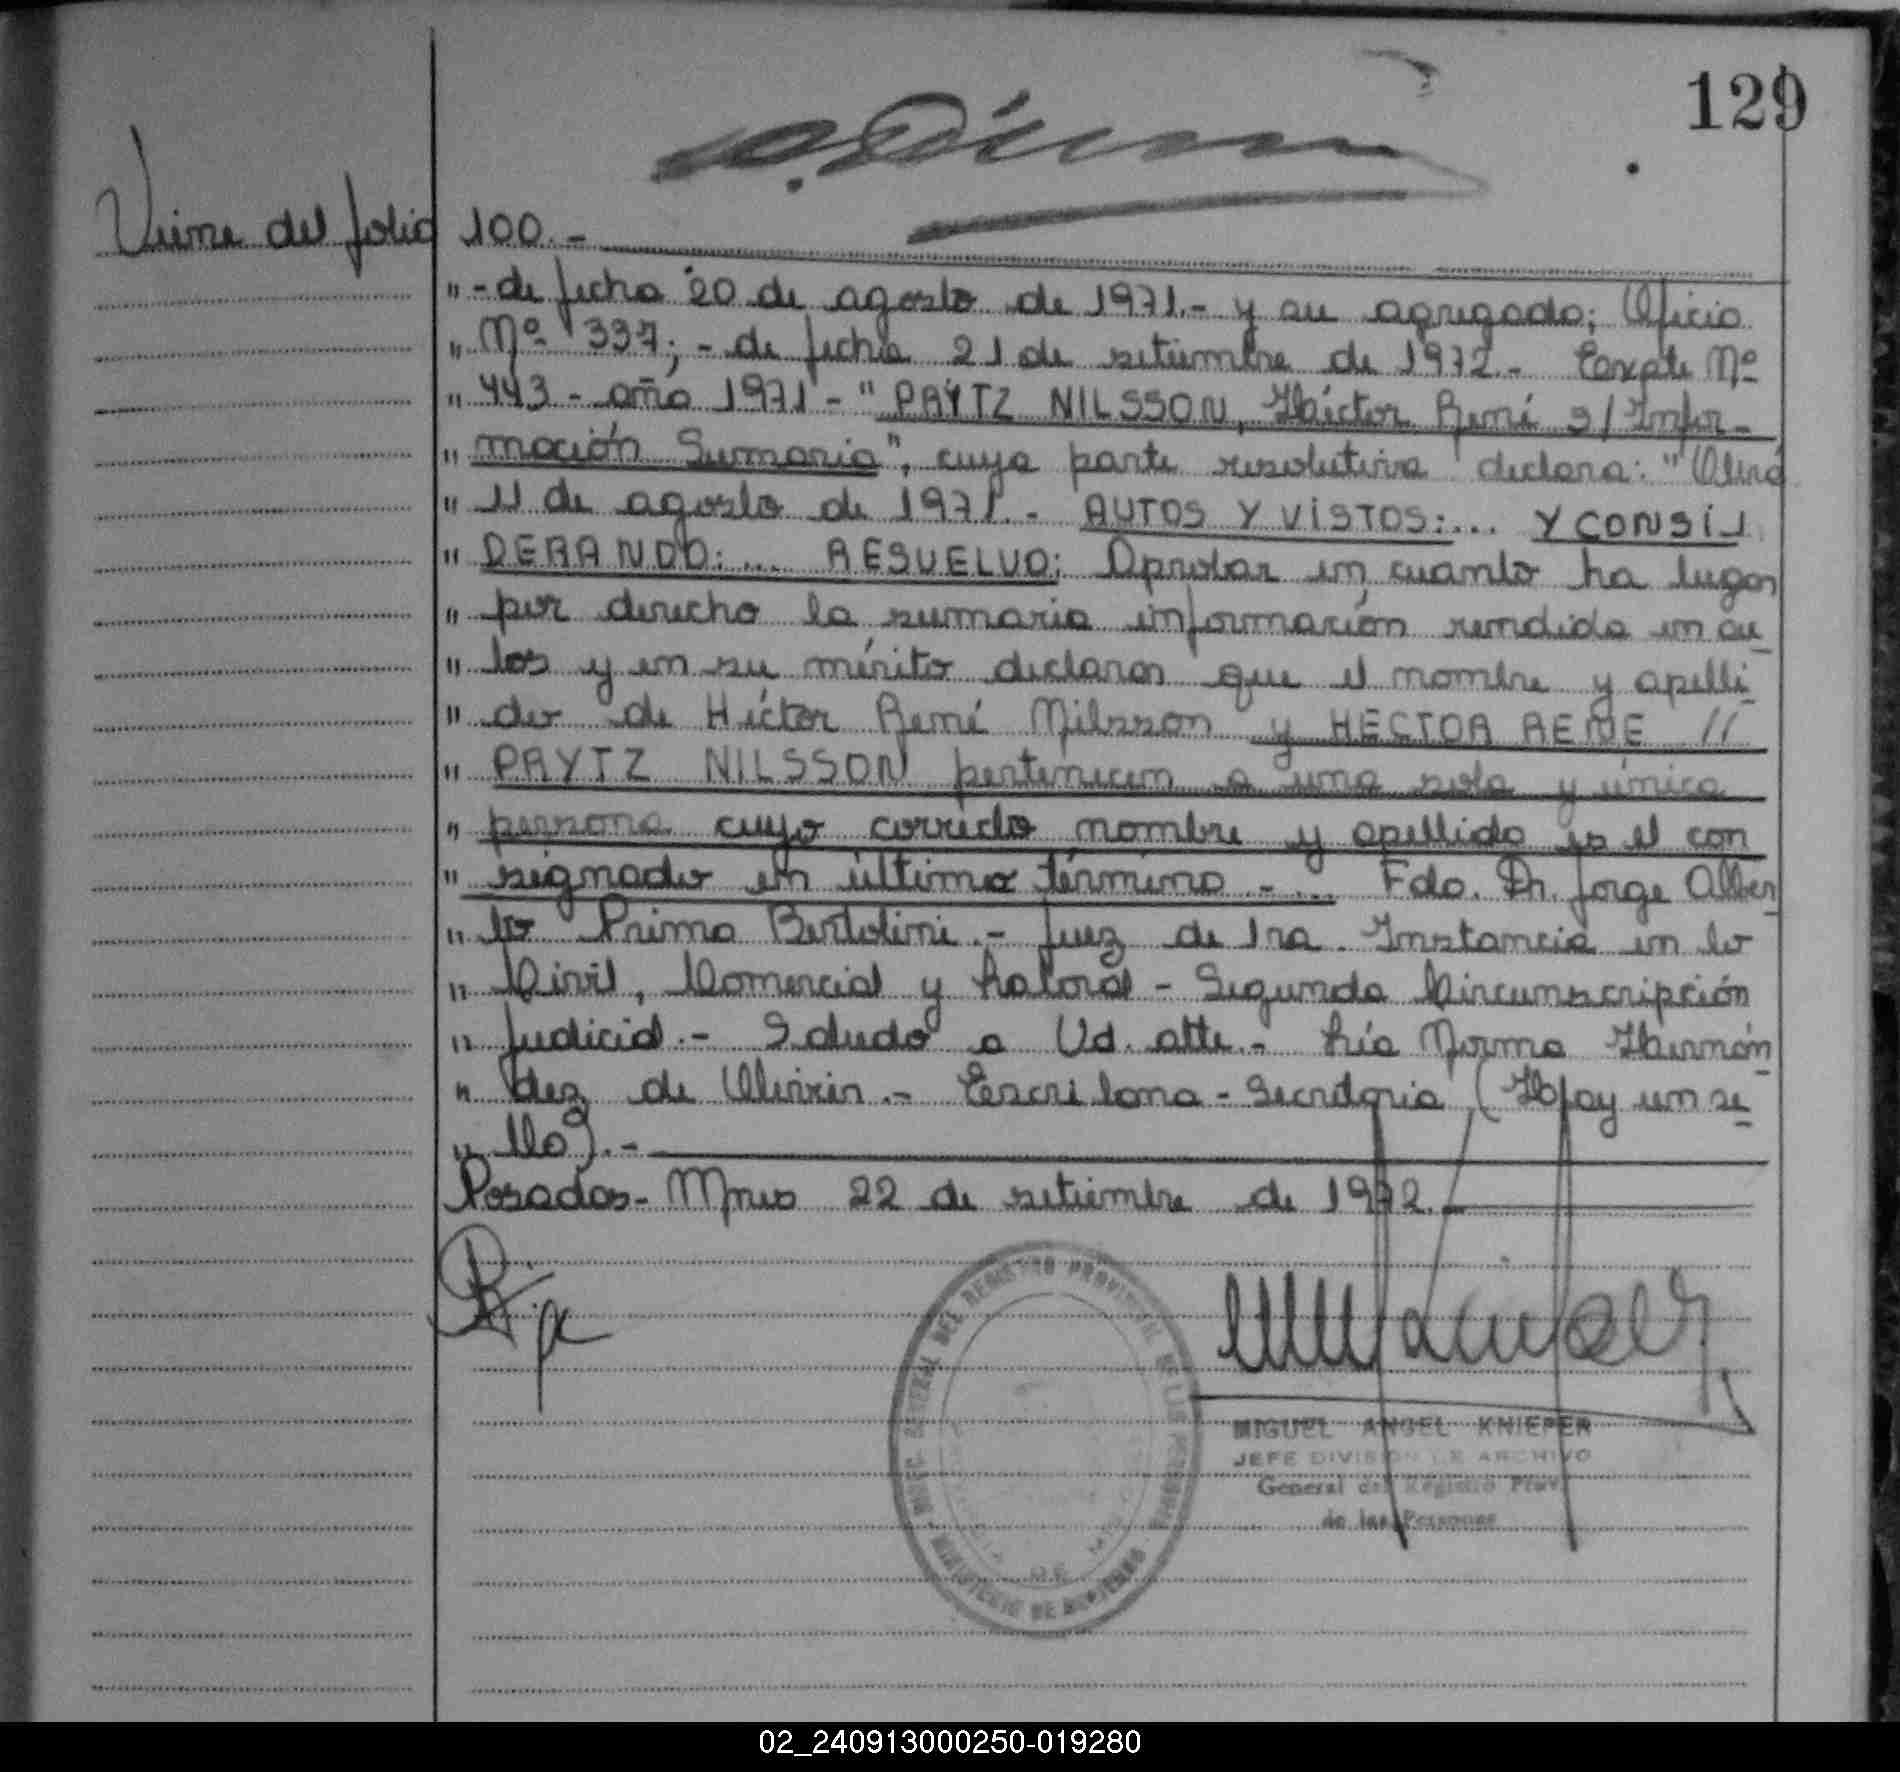 129
Viene del folio 100.-
"- de fecha 20 de agosto de 1971.- y su agregado; Oficio
" Nº 337; - de fecha 21 de setiembre de 1972.- Expte Nº
" 443 - año 1971 - "PAYTZ NILSSON, Héctor René s/ Infor-
" mación Sumaria", cuya parte resolutiva declara: "Oberá
" 11 de agosto de 1971.- AUTOS Y VISTOS:... Y CONSI
" DERANDO:... RESUELVO: Aprobar en cuanto ha lugar
" por derecho la sumaria información rendida en au
" tos y en su mérito declarar que el nombre y apelli
" do de Héctor René Nilsson y HECTOR RENE //
" PAYTZ NILSSON pertenecen a una sola y única
" persona cuyo correcto nombre y apellido es el con
" signado en último término - ... Fdo. Dr. Jorge Alber
" to Primo Bertolini.- Juez de 1ra. Instancia en lo
" Civil, Comercial y Laboral - Segunda Circunscripción
" Judicial.- Saludo a Ud. atte.- Lía Norma Hernán
" dez de - Escribana - Secretaria (Hay un se
" llo).-
Posadas - Mnes 22 de setiembre de 1972.-
DIREC. GENERAL DEL REGISTRO PROVINCIAL DE LAS PERSONAS
MINISTERIO DE GOBIERNO
MIGUEL ANGEL KNIEPER
JEFE DIVISION DE ARCHIVO
General del Registro Prov.
de las Personas
02_240913000250-019280